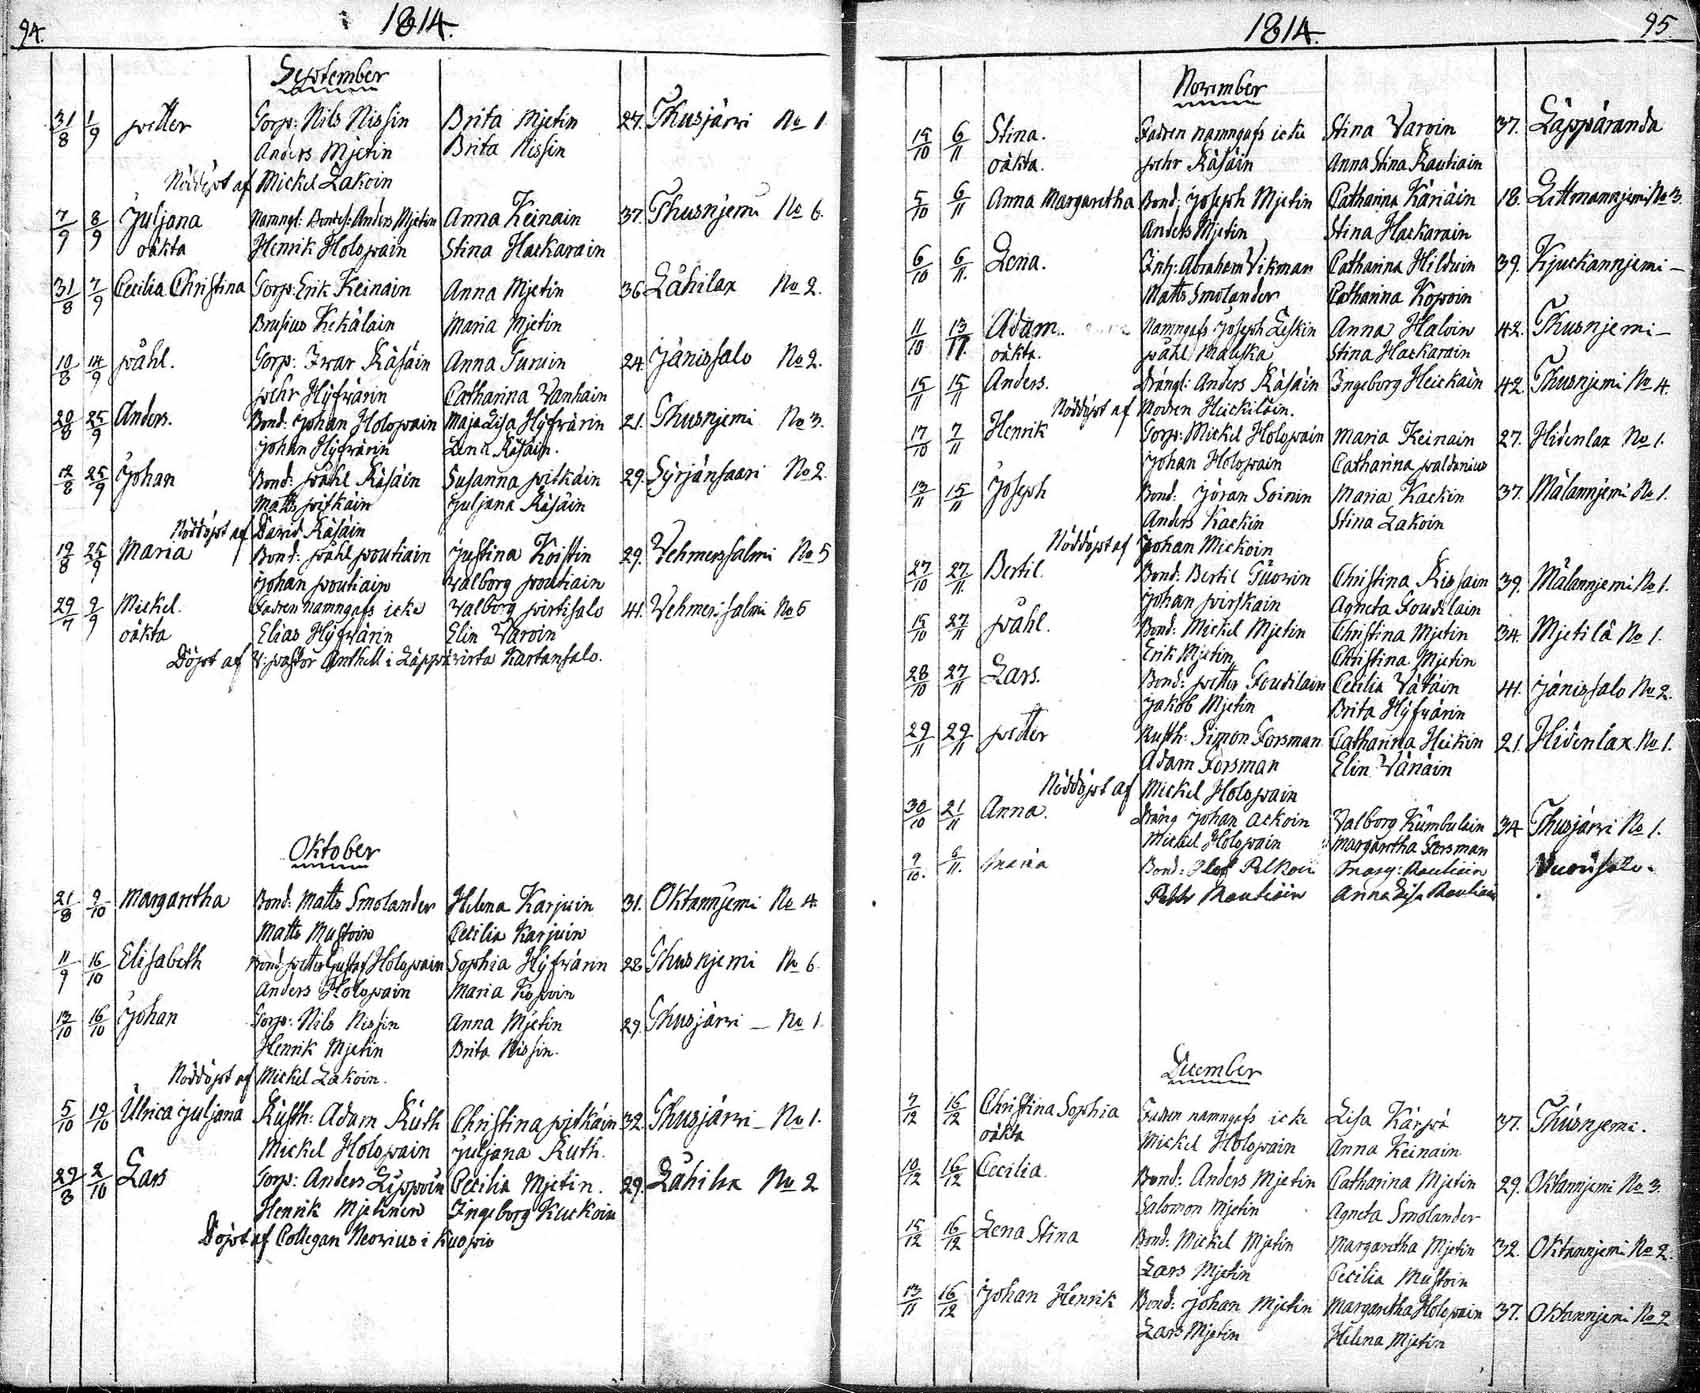 94.
1814.
September
31/8 1/9 petter Torp: Nils Nissin Brita Mjetin 27. Thusjärvi No 1
Anders Mjetin Brita Nissin
Nöddöpt af Mickel Lakoin
7/9 8/9 Juljana Namngf: Bondes: Anders Mjetin Anna Keinain 37. Thusnjemi No 6.
oäkta Henrik Holopain Stina Hackarain
31/8 7/9 Cecilia Christina Torp: Erik Keinain Anna Mjetin 36 Lähilax No 2.
Brusius Kekälain Maria Mjetin
10/8 14/9 påhl. Torp: Ivar Räsäin Anna Turuin 24. Jänissalo No 2.
pehr Hyfvärin Catharina Vanhain
20/8 25/9 Anders. Bond: Johan Holopain Maja Lisa Hyfvärin 21. Thusnjemi No 3.
Johan Hyfvärin Lena Räsäin.
12/8 25/9 Johan Bond: påhl Räsäin Susanna pitkäin 29. Syrjänsaari No 2.
Matts pitkäin Juljana Räsäin
Nöddöpt af David Räsäin
19/8 25/9 Maria Bond: påhl poutiain Justina Koistin 29. Vehmersalmi No 5
Johan poutiain Valborg poutiain
29/7 9/9 Mickel. Fadren namngafs icke Valborg pirtisalo 41. Vehmersalmi No 5
oäkta Elias Hyfvärin Elin Varoin
Döpt af V: pastor Anthell i Läppävirta Kartansalo.
Oktober
21/8 9/10 Margaretha Bond: Matts Smolander Helena Karjuin 31. Oktannjemi No 4.
Matts Mustoin Cecilia Karjuin
11/9 16/10 Elisabeth Bond petter Gustaf Holopain Sophia Hyfvärin 28 Thusnjemi No 6.
Anders Holopain Maria Kopoin
13/10 16/10 Johan Torp: Nils Nissin Anna Mjetin 29. Thusjärvi — No 1.
Henrik Mjetin Brita Nissin.
Nöddöpt af Mickel Lakoin.
5/10 19/10 Ulrica Juljana Rusth: Adam Ruth Christina pitkäin 32. Thusjärvi — No 1.
Mickel Holopain Juljana Ruth.
29/8 2/10 Lars Torp: Anders Lippoin Cecilia Mjetin. 29. Lähilax No 2
Henrik Mjetinen Ingeborg Kuckoin
Döpt af Collegan Neovius i Kuopio
95.
1814.
November
15/10 6/11 Stina. Fadren namngafs icke Stina Varoin 37. Läppäranda
oäkta. pehr Räsäin Anna Stina Rautiain
5/10 6/11 Anna Margaretha Bond: Joseph Mjetin Catharina Käriäin 18. Littmannjemi No 3.
Anders Mjetin Stina Hackarain
6/10 6/11. Lena. Inh: Abraham Vikman Catharina Hilduin 39. Kjuckannjemi —
Matts Smolander Catharina Kopoin
11/10 13/11. Adam. Namngafs Joseph Leskin Anna Haloin 42. Thusnjemi —
oäkta. påhl Mauska Stina Hackarain
15/11 15/11 Anders. Drängl: Anders Räsäin Ingeborg Heickäin 42. Thusnjemi No 4.
Nöddöpt af Modren Heickiläin.
17/10 7/11 Henrik Torp: Mickel Holopain Maria Keinain 27. Hidenlax No 1.
Johan Holopain Catharina paldanius
13/11 15/11 Joseph Bond: Jöran Soinin Maria Kackin 37. Mälannjemi No 1.
Anders Kackin Stina Lakoin
Nöddöpt af Johan Mickoin
27/10 27/11. Bertil. Bond: Bertil Tiiovin Christina Rissain 39. Mälannjemi No 1.
Johan pirskain Agneta Foudilain
15/10 27/11 påhl. Bond: Mickel Mjetin Christina Mjetin 34. Mjetilä No 1.
Erik Mjetin Christina Mjetin
28/10 27/11 Lars. Bond: petter Foudilain Cecilia Vätäin 41. Jänissalo No 2.
Jakob Mjetin Brita Hyfvärin
29/11 29/11 petter Rusth: Simon Forsman Catharina Heikin 21. Hidenlax No 1.
Adam Forsman Elin Vänäin
Nöddöpt af Mickel Holopain
30/10 21/11 Anna. Dräng Johan Ackoin Valborg Kumbulain 34 Thusjärvi No 1.
Mickel Holopain Margaretha Forsman
9/10. 6/11. Maria Bond: Olof Pelkoin Marg: Rautiain
Pehr Rautiäin Anna Lisa Rautiain
December
7/12 16/12 Christina Sophia Fadren namngafs icke Lisa Kärpä 37. Thusnjemi.
oäkta Mickel Holopain Anna Keinain
10/12 16/12 Cecilia. Bond: Anders Mjetin Catharina Mjetin 29. Oktannjemi No 3.
Salomon Mjetin Agneta Smolander
15/12 16/12 Lena Stina Bond: Mickel Mjetin Margaretha Mjetin 32. Oktannjemi No 2.
Lars Mjetin Cecilia Mustoin
13/11 16/12 Johan Henrik Bond: Johan Mjetin Margaretha Holopain 37. Oktannjemi No 2
Lars Mjetin Helena Mjetin